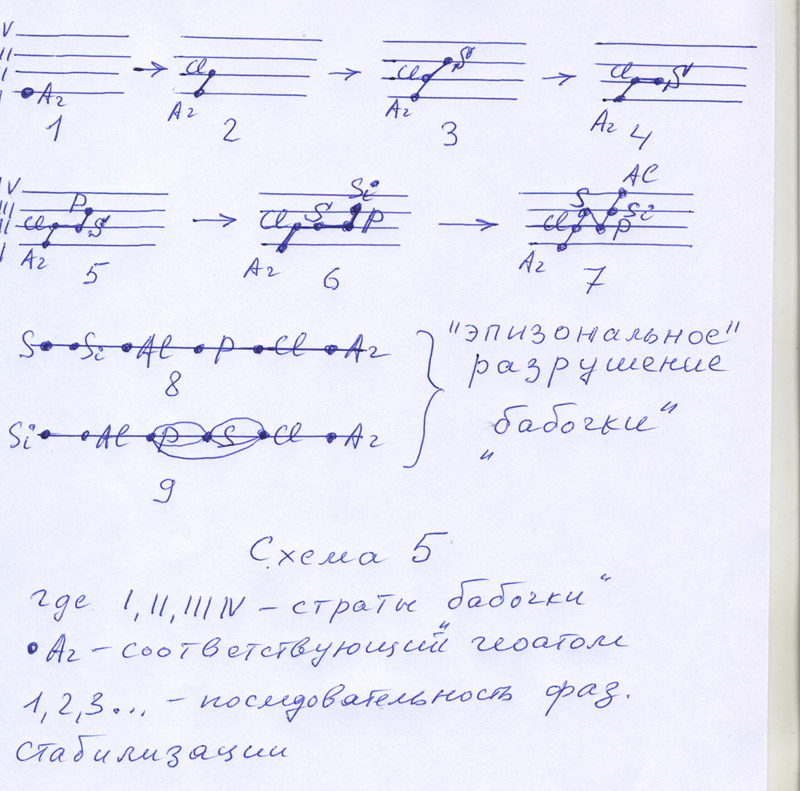 IV
III
II
I
Ar
1
Cl
Ar
2
S
Cl
Ar
3
Cl S
Ar
4
IV
III
II
I
P
Cl S
Ar
5
Si
Cl S P
Ar
6
Al
S Si
Cl P
Ar
7
S Si Al P Cl Ar
8
Si Al P S Cl Ar
9
"эпизональное"
разрушение
"бабочки"
Схема 5
где I, II, III IV – страты "бабочки"
• Ar – соответствующий геоатом
1, 2, 3... – последовательность фаз.
стабилизации